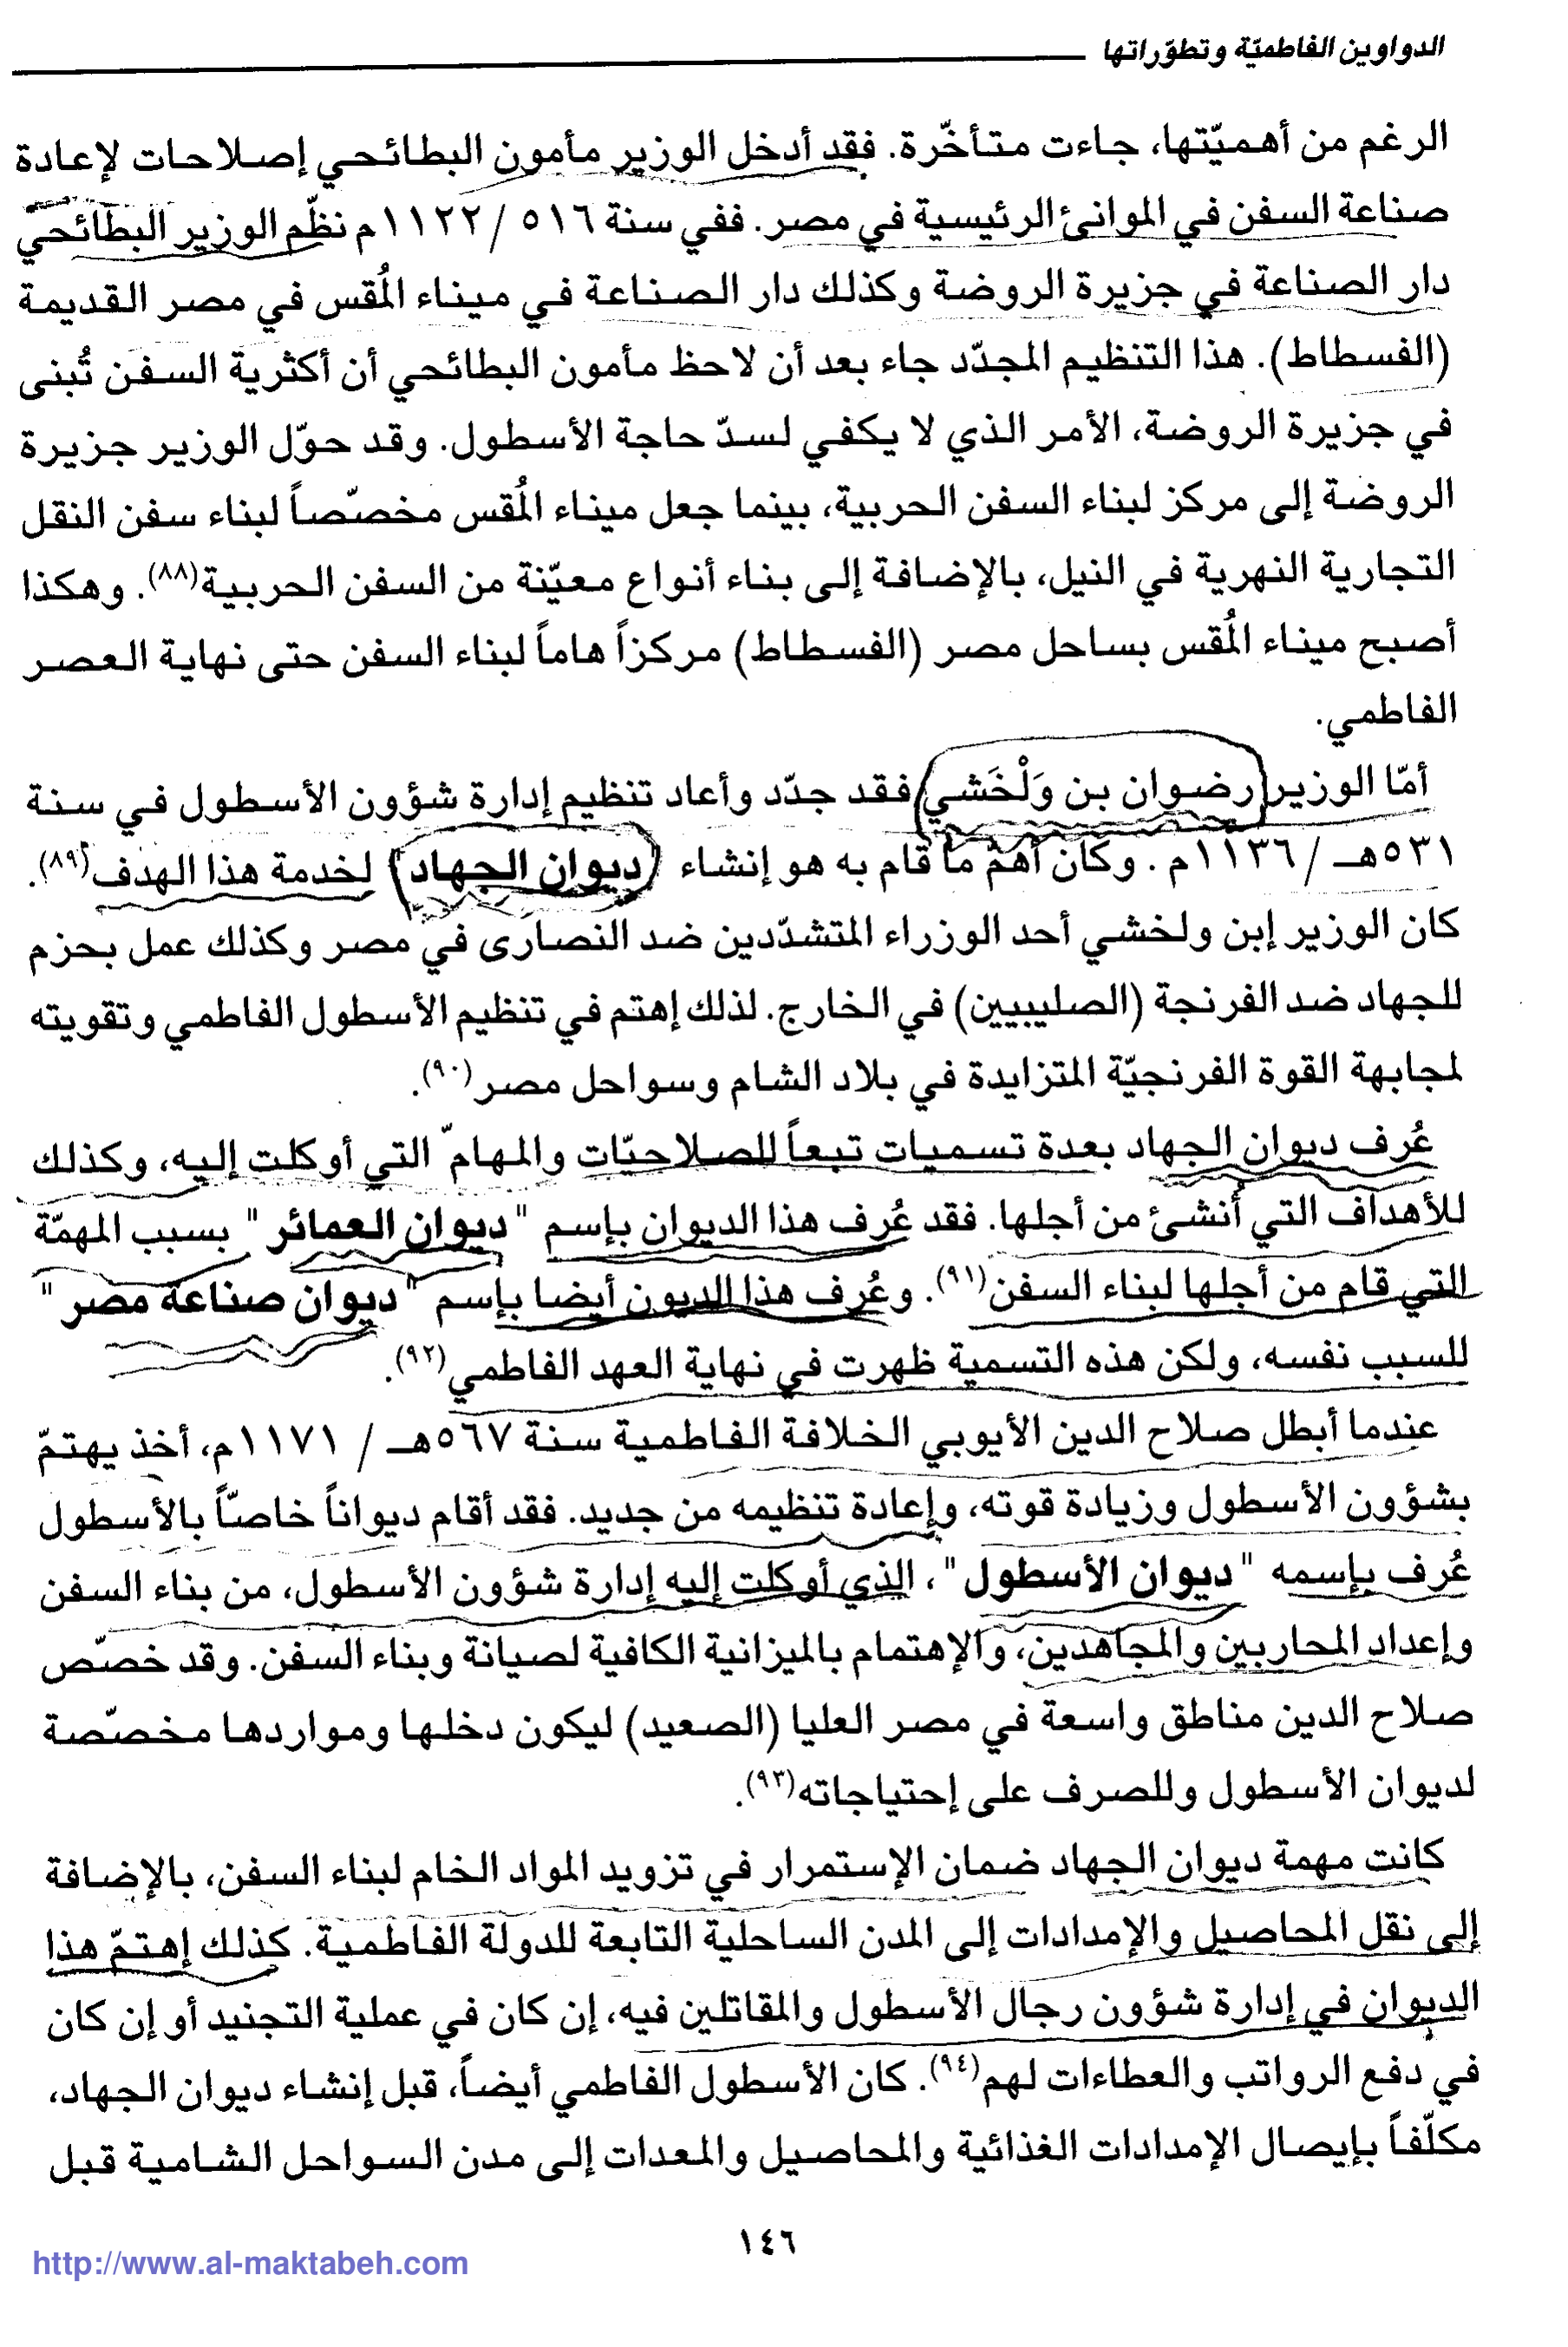 الدواوين الفاطميّة وتطوّراتها
الرغم من أهميّتها، جاءت متأخّرة. فقد أدخل الوزير مأمون البطائحي إصلاحات لإعادة
صناعة السفن في الموانئ الرئيسية في مصر. ففي سنة ٥١٦ / ١١٢٢م نظّم الوزير البطائحي
دار الصناعة في جزيرة الروضة وكذلك دار الصناعة في ميناء المُقس في مصر القديمة
(الفسطاط). هذا التنظيم المجدّد جاء بعد أن لاحظ مأمون البطائحي أن أكثرية السفن تُبنى
في جزيرة الروضة، الأمر الذي لا يكفي لسدّ حاجة الأسطول. وقد حوّل الوزير جزيرة
الروضة إلى مركز لبناء السفن الحربية، بينما جعل ميناء المُقس مخصّصاً لبناء سفن النقل
التجارية النهرية في النيل، بالإضافة إلى بناء أنواع معيّنة من السفن الحربية(٨٨). وهكذا
أصبح ميناء المُقس بساحل مصر (الفسطاط) مركزاً هاماً لبناء السفن حتى نهاية العصر
الفاطمي.
أمّا الوزير رضوان بن وَلْخَشي فقد جدّد وأعاد تنظيم إدارة شؤون الأسطول في سنة
٥٣١هـ / ١١٣٦م. وكان أهمّ ما قام به هو إنشاء (ديوان الجهاد) لخدمة هذا الهدف(٨٩).
كان الوزير إبن ولخشي أحد الوزراء المتشدّدين ضد النصارى في مصر وكذلك عمل بحزم
للجهاد ضد الفرنجة (الصليبيين) في الخارج. لذلك إهتم في تنظيم الأسطول الفاطمي وتقويته
لمجابهة القوة الفرنجيّة المتزايدة في بلاد الشام وسواحل مصر(٩٠).
عُرف ديوان الجهاد بعدة تسميات تبعاً للصلاحيّات والمهامّ التي أوكلت إليه، وكذلك
للأهداف التي أُنشئ من أجلها. فقد عُرف هذا الديوان بإسم "ديوان العمائر" بسبب المهمّة
التي قام من أجلها لبناء السفن(٩١). وعُرف هذا الديون أيضا بإسم "ديوان صناعة مصر"
للسبب نفسه، ولكن هذه التسمية ظهرت في نهاية العهد الفاطمي(٩٢).
عندما أبطل صلاح الدين الأيوبي الخلافة الفاطمية سنة ٥٦٧هـ / ١١٧١م، أخذ يهتمّ
بشؤون الأسطول وزيادة قوته، وإعادة تنظيمه من جديد. فقد أقام ديواناً خاصّاً بالأسطول
عُرف بإسمه "ديوان الأسطول"، الذي أوكلت إليه إدارة شؤون الأسطول، من بناء السفن
وإعداد المحاربين والمجاهدين، والإهتمام بالميزانية الكافية لصيانة وبناء السفن. وقد خصّص
صلاح الدين مناطق واسعة في مصر العليا (الصعيد) ليكون دخلها ومواردها مخصّصة
لديوان الأسطول وللصرف على إحتياجاته(٩٣).
كانت مهمة ديوان الجهاد ضمان الإستمرار في تزويد المواد الخام لبناء السفن، بالإضافة
إلى نقل المحاصيل والإمدادات إلى المدن الساحلية التابعة للدولة الفاطمية. كذلك إهتمّ هذا
الديوان في إدارة شؤون رجال الأسطول والمقاتلين فيه، إن كان في عملية التجنيد أو إن كان
في دفع الرواتب والعطاءات لهم(٩٤). كان الأسطول الفاطمي أيضاً، قبل إنشاء ديوان الجهاد،
مكلّفاً بإيصال الإمدادات الغذائية والمحاصيل والمعدات إلى مدن السواحل الشامية قبل
١٤٦
http://www.al-maktabeh.com